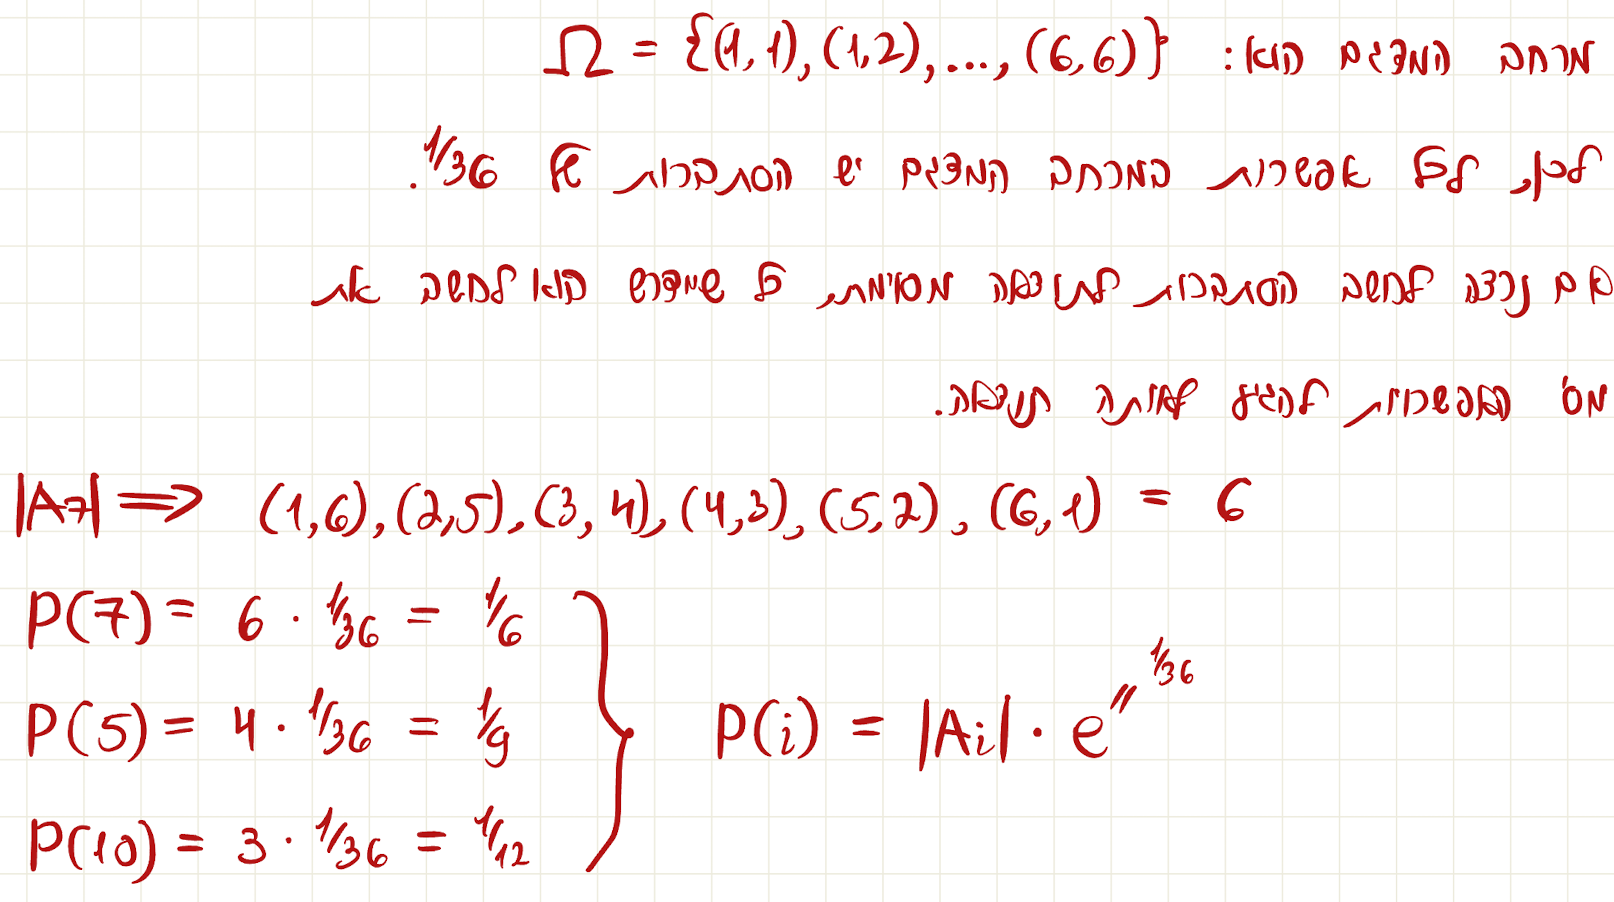 מרחב המדגם הוא: Ω = {(1,1),(1,2),...,(6,6)}
לכן, לכל אפשרות במרחב המדגם יש הסתברות של 1/36.
אם נרצה לחשב הסתברות לתוצאה מסוימת, כל שנדרש הוא לחשב את
מס' האפשרויות להגיע לאותה תוצאה.
|A₇| ⟹ (1,6),(2,5),(3,4),(4,3),(5,2),(6,1) = 6
P(7) = 6 · 1/36 = 1/6
P(5) = 4 · 1/36 = 1/9
P(i) = |Aᵢ| · e〃 1/36
P(10) = 3 · 1/36 = 1/12